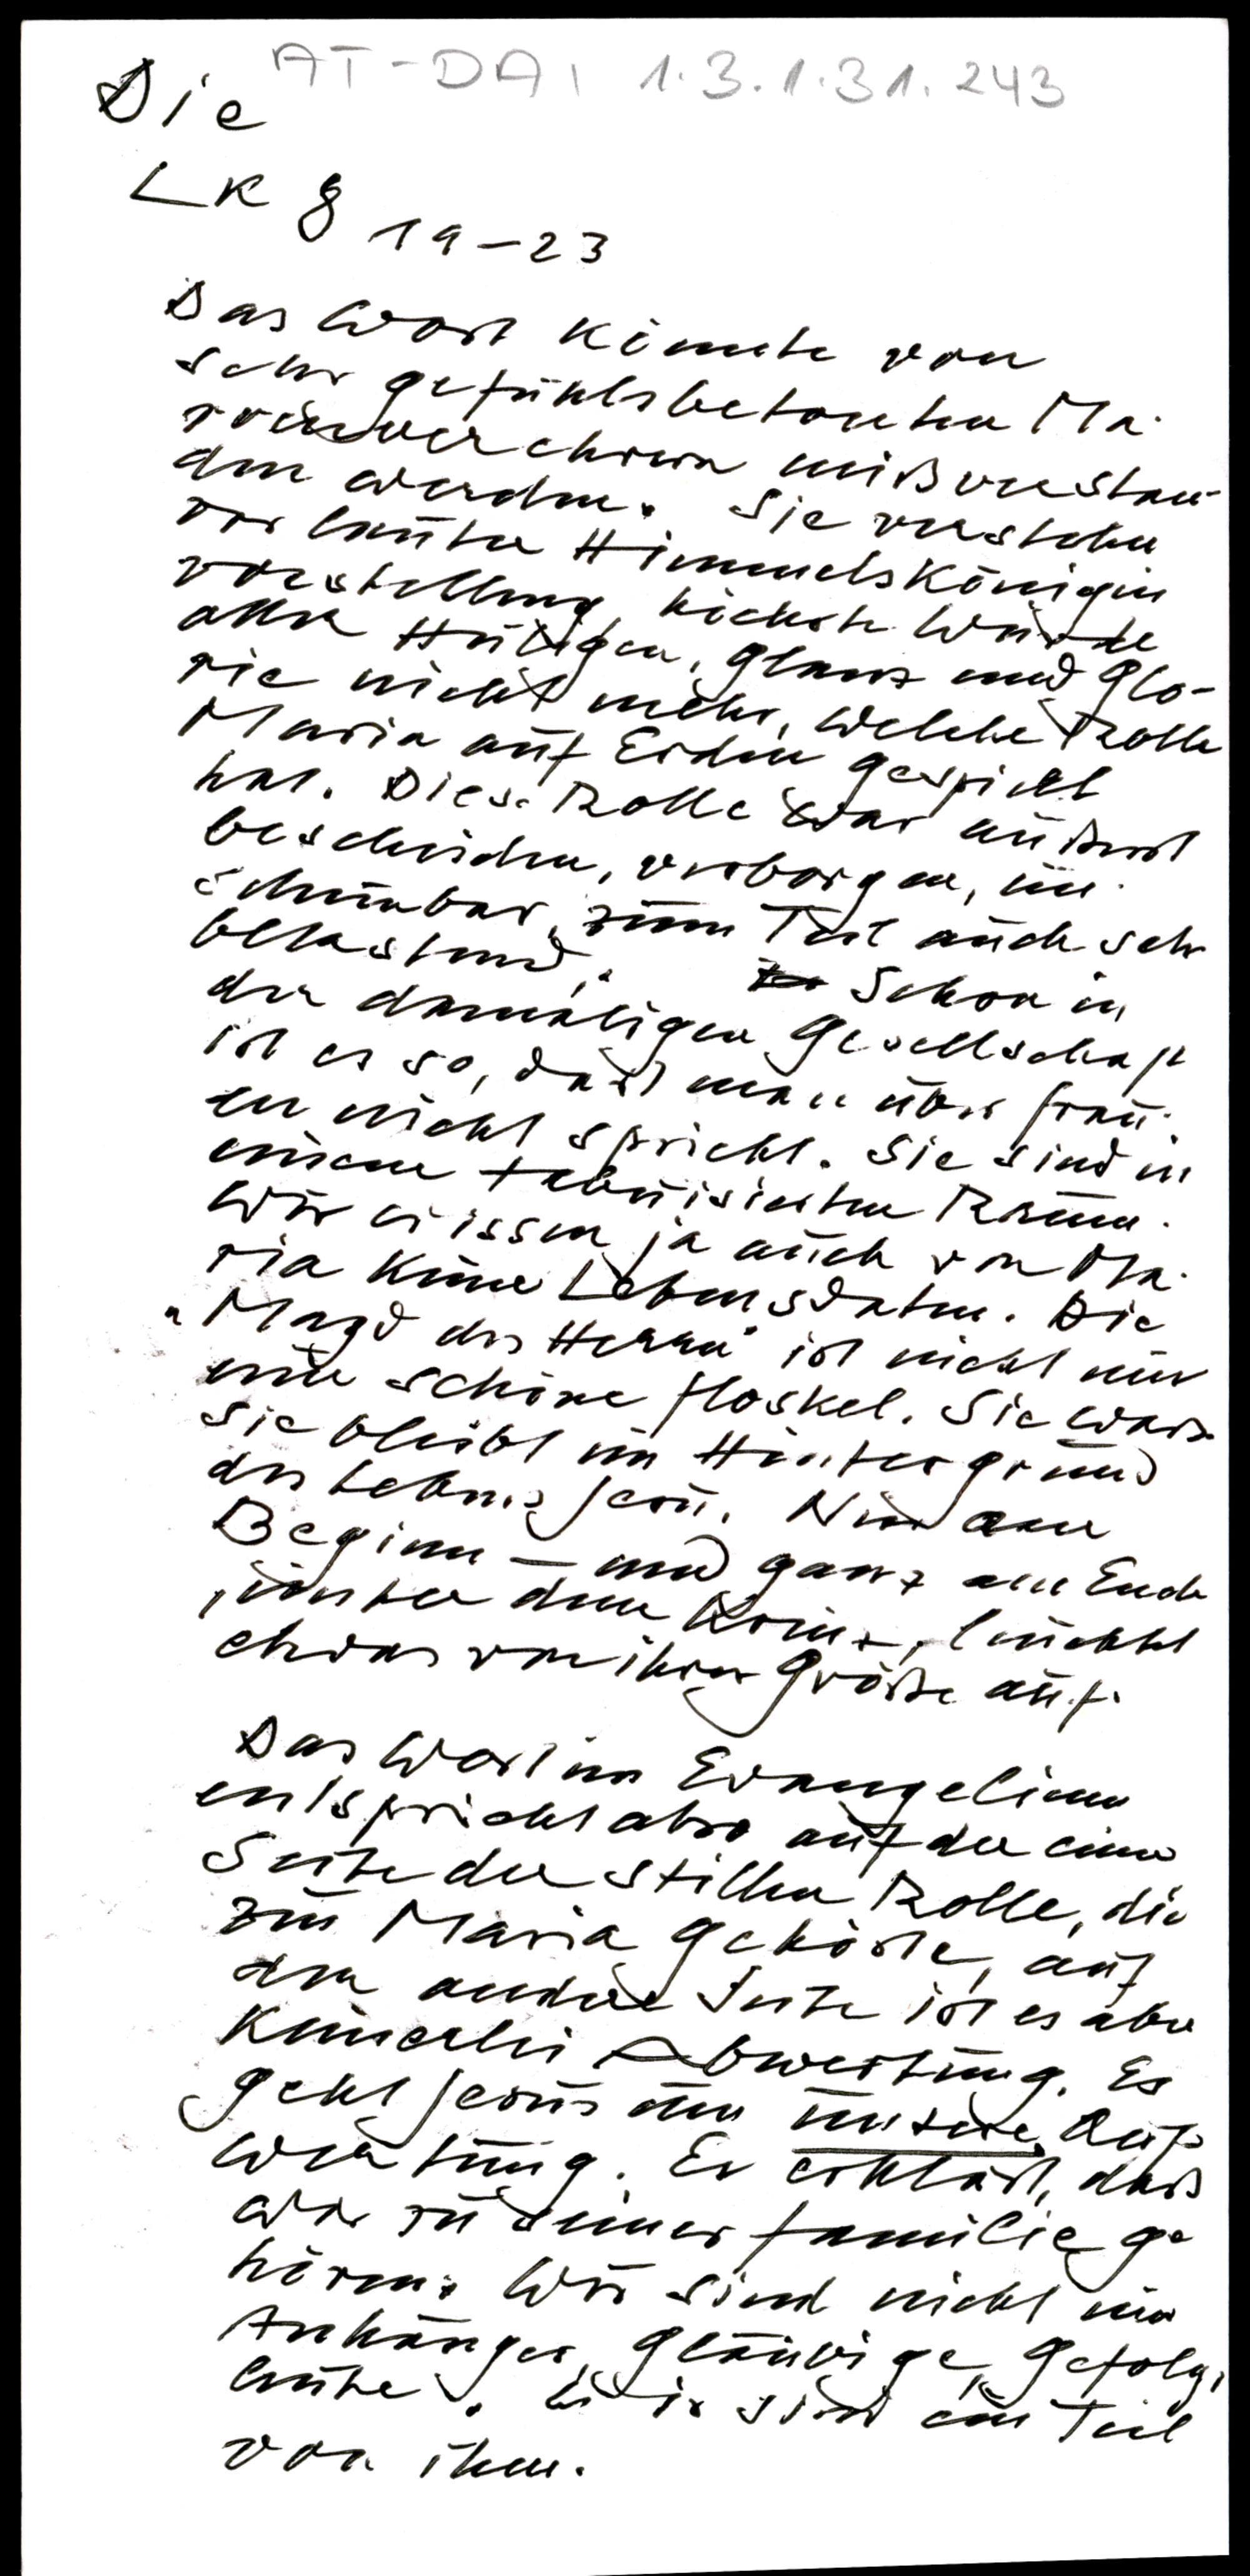 AT-DAI 1.3.1.31.243
Die
LK 8 19-23
Das Wort könnte von
sehr gefühlsbetonten Ma-
rienverehrern mißverstan-
den werden. Sie verstehen
vor lauter Himmelskönigin
vorstellung, höchste Würde
aller Heiligen, Glanz und Glo-
rie nicht mehr, welche Rolle
Maria auf Erden gespielt
hat. Diese Rolle war äußerst
bescheiden, verborgen, un-
scheinbar, zum Teil auch sehr
belastend. Schon in
der damaligen Gesellschaft
ist es so, daß man über Frau-
en nicht spricht. Sie sind in
einem tabuisierten Raum.
Wir wissen ja auch von Ma-
ria keine Lebensdaten. Die
"Magd des Herrn" ist nicht nur
eine schöne Floskel. Sie war's
Sie bleibt im Hintergrund
des Lebens Jesu. Nur am
Beginn - und ganz am Ende
, unter dem Kreuz, leuchtet
etwas von ihrer Größe auf.
Das Wort im Evangelium
entspricht also auf der einen
Seite der stillen Rolle, die
zu Maria gehörte, auf
der andere Seite ist es aber
keinerlei Abwertung. Es
geht Jesus um unsere Auf-
wertung. Er erklärt, daß
wir zu seiner Familie ge
hören. Wir sind nicht nur
Anhänger, Gläubige, Gefolgs
leute. Wir sind ein Teil
von ihm.